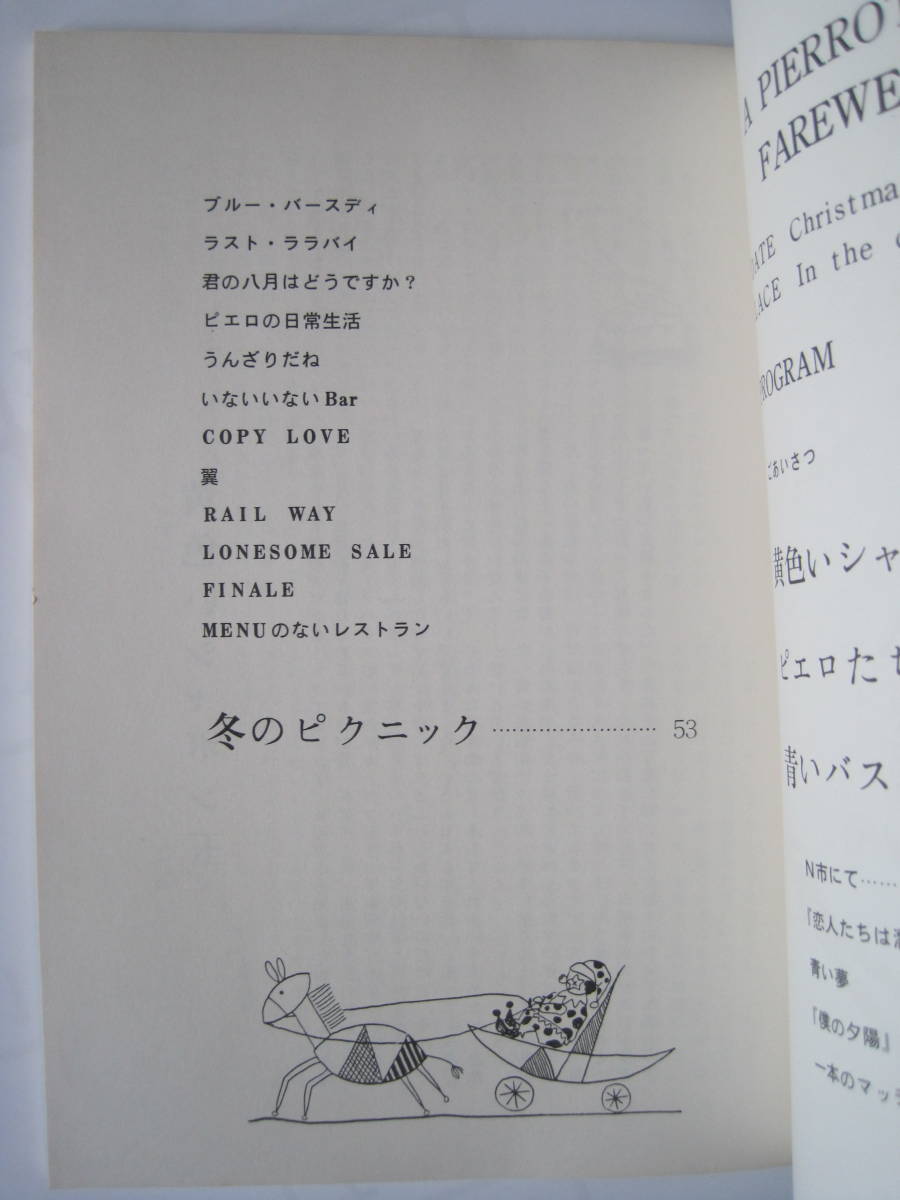 ブルー・バースディ
ラスト・ララバイ
君の八月はどうですか?
ピエロの日常生活
うんざりだね
いないいないBar
COPY LOVE
翼
RAIL WAY
LONESOME SALE
FINALE
MENUのないレストラン
冬のピクニック……………………… 53
A PIERROT
FAREWE
DATE Christma
PLACE In the
PROGRAM
ごあいさつ
黄色いシャ
ピエロたち
青いバス
N市にて……
『恋人たちは
青い夢
『僕の夕陽』
一本のマッチ